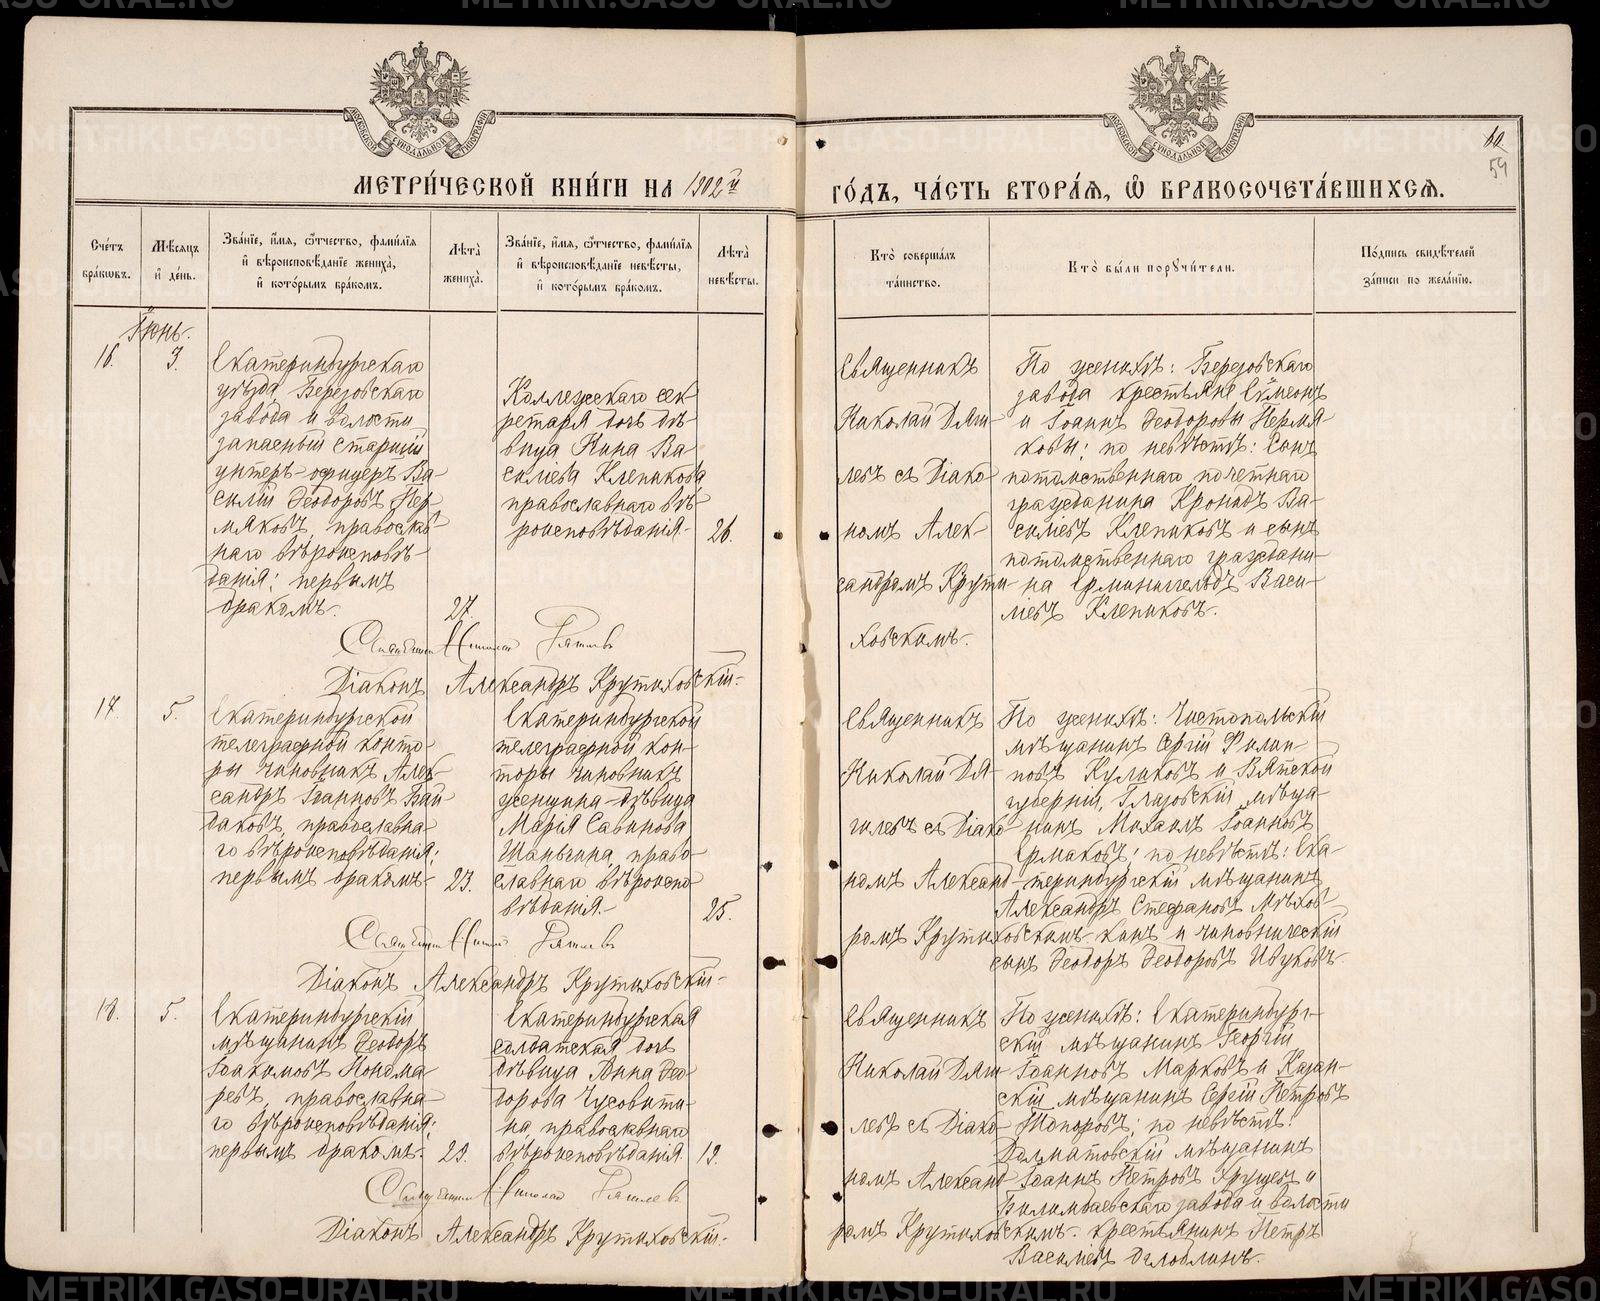 МЕТРИ́ЧЕСКОЙ КНИ́ГИ НА 1902й
ГО́ДЪ, ЧА́СТЬ ВТОРА́Я, Ѿ БРАКОСОЧЕТА́ВШИХСЯ.
60
54
Сче́тъ браковъ.
Мѣсяцъ и де́нь.
Зва́нїе, и҆́мя, ѻ҆́тчество, фами́лїя и вѣроисповѣ́данїе жениха̀, и кото́рымъ бра́комъ.
Лѣта̀ жениха̀.
Зва́нїе, и҆́мя, ѻ҆́тчество, фами́лїя и вѣроисповѣ́данїе невѣ́сты, и кото́рымъ бра́комъ.
Лѣта̀ невѣ́сты.
Кто̀ соверша́лъ та́инство.
Кто̀ бы́ли порꙋчи́тели.
По́дпись свидѣ́телей за́писи по жела́нїю.
Іюнь.
16.
3.
Екатеринбургскаго
уѣзда Березовскаго
завода и волости
запасный старшій
унтеръ-офицеръ Ва-
силій Ѳеодоровъ Пер-
мяковъ, православ-
наго вѣроисповѣ-
данія; первымъ
бракомъ.
27.
Коллежскаго сек-
ретаря дочь дѣ-
вица Нина Ва-
силіева Клепикова
православнаго вѣ-
роисповѣданія.
26.
Священникъ
Николай
левъ съ Діако-
номъ Алек-
сандромъ Крути-
ховскимъ.
По женихѣ: Березовскаго
завода крестьяне Симеонъ
и Іоаннъ Ѳеодоровы Пермя-
ковы; по невѣстѣ: сынъ
потомственнаго почетнаго
гражданина Кронидъ Ва-
силіевъ Клепиковъ и сынъ
потомственнаго граждани-
на Ерминингельдъ Васи-
ліевъ Клепиковъ.
Священникъ Николай
Діаконъ Александръ Крутиховскій.
17.
5.
Екатеринбургской
телеграфной конто-
ры чиновникъ Алек-
сандръ Іоанновъ Бай-
даковъ, православна-
го вѣроисповѣданія;
первымъ бракомъ.
23.
Екатеринбургской
телеграфной кон-
торы чиновникъ
женщина-дѣвица
Марія Савинова
Шаньгина, право-
славнаго вѣроиспо-
вѣданія.
25.
Священникъ
Николай
съ Діако-
номъ Александ-
ромъ Крутиховскимъ.
По женихѣ: Чистопольскій
мѣщанинъ Сергій Филип-
повъ Куликовъ и Вятской
губерніи, Глазовскій мѣща-
нинъ Михаилъ Іоанновъ
Ермаковъ; по невѣстѣ: Ека-
теринбургскій мѣщанинъ
Александръ Стефановъ Мѣхов-
кинъ и чиновническій
сынъ Ѳеодоръ Ѳеодоровъ Ивуковъ.
Священникъ Николай
Діаконъ Александръ Крутиховскій.
18.
5.
Екатеринбургскій
мѣщанинъ Ѳеодоръ
Іоакимовъ Пономa-
ревъ, православна-
го вѣроисповѣданія;
первымъ бракомъ.
29.
Екатеринбургская
солдатская дочь
дѣвица Анна Ѳео-
дорова Чусовити-
на, православнаго
вѣроисповѣданія.
19.
Священникъ
Николай
левъ съ Діако-
номъ Александ-
ромъ Крутиховскимъ.
По женихѣ: Екатеринбург-
скій мѣщанинъ Георгій
Іоанновъ Марковъ и Казан-
скій мѣщанинъ Сергій Петровъ
Топоровъ; по невѣстѣ:
Долматовскій мѣщанинъ
Іоаннъ Петровъ и
Билимбаевскаго завода и волости
крестьянинъ Петръ
Василіевъ Оглоблинъ.
Священникъ Николай
Діаконъ Александръ Крутиховскій.
METRIKI.GASO-URAL.RU